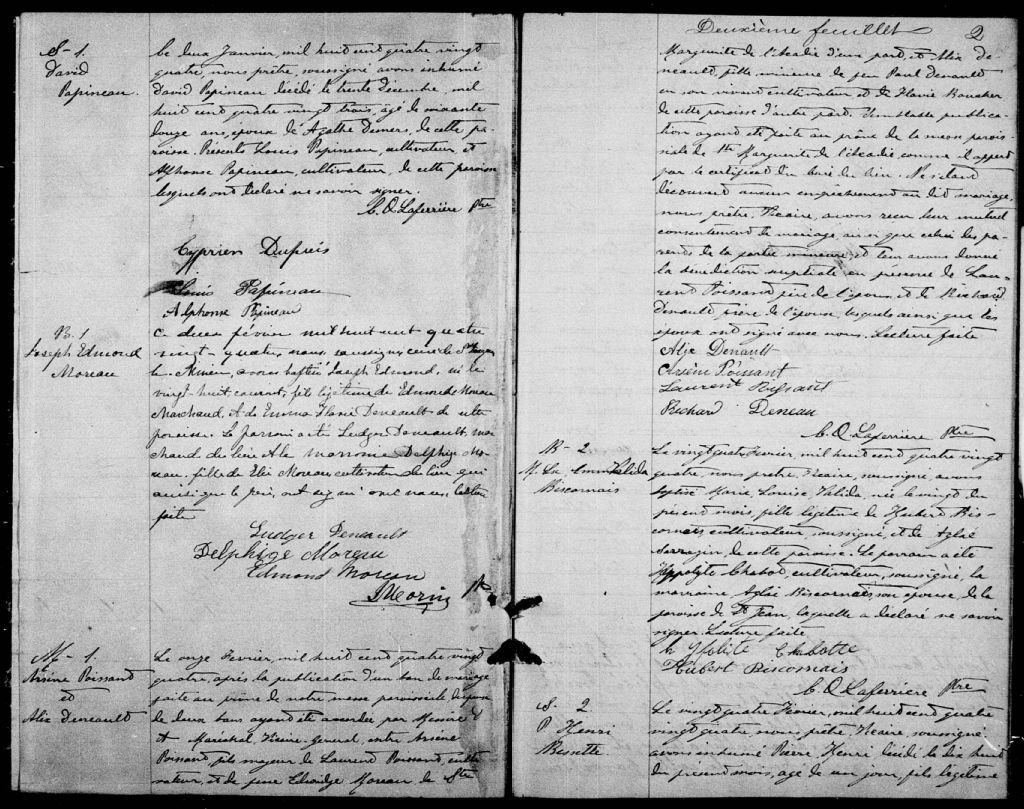 S - 1.
David
Papineau.
Le deux Janvier, mil huit cent quatre vingt
quatre, nous prêtre, soussigné avons inhumé
David Papineau décédé le trente Décembre, mil
huit cent quatre vingt trois, âgé de soixante
douze ans, epoux de Agathe Demers, de cette pa-
roisse. Présents Louis Papineau, cultivateur, et
Alphonse Papineau, cultivateur, de cette paroisse
lesquels ont déclaré ne savoir signer.
C. O. Laferrière Ptre
Cyprien Dupuis
Louis Papineau
Alphonse Papineau
B. 1
Joseph Edmond
Moreau
Ce deux février mil huit cent quatre
vingt-quatre, nous, soussigné, curé de St
le Mineur, avons baptisé Joseph Edmond, né le
vingt-huit courant, fils légitime de Edmond Moreau
Marchand, & de Emma Flavie Deneault de cette
paroisse. Le parrain a été Ludger Deneault, mar-
chand de lieu & la marraine Delphige Mo-
reau, fille de Elie Moreau cultivateur du lieu, qui
ainsi que le père, ont signé avec nous, lecture
faite
Ludger Deneault
Delphige Moreau
Edmond Moreau
Morin Ptre
M - 1.
Arsène Poissant
et
Alix Deneault
Le onze Février, mil huit cent quatre vingt
quatre, après la publication d'un ban de mariage
faite au prône de notre messe paroissiale dispense
de deux bans ayant été accordée par Messire
A Maréchal, Vicaire-Général, entre Arsène
Poissant, fils majeur de Laurent Poissant, culti-
vateur, et de feue Edwidge Moreau de Ste
Deuxième feuillet 2
Marguerite de l'Acadie d'une part, et Alix De-
neault, fille mineure de feu Paul Denault
en son vivant cultivateur et de Flavie Boucher
de cette paroisse d'autre part. Semblable publica-
tion ayant été faite au prône de la messe parois-
siale de Ste Marguerite de l'Acadie, comme il appert
par le certificat du Curé du lieu. Ne s'étant
découvert aucun empêchement au dit mariage,
nous prêtre, Vicaire, avons reçu leur mutuel
consentement de mariage, ainsi que celui des pa-
rents de la partie mineure, et leur avons donné
la bénédiction nuptiale en présence de Lau-
rent Poissant père de l'époux, et de Richard
Denault, frère de l'épouse, lesquels ainsi que les
époux ont signé avec nous. Lecture faite
Alix Denault
Arsène Poissant
Laurent Poissant
Richard Deneau
C. O. Laferrière Ptre
B - 2
M. Ls Valida
Biscornais
Le vingt quatre Février, mil huit cent quatre vingt
quatre, nous prêtre, Vicaire, soussigné avons
baptisé Marie, Louise, Valida, née le vingt du
présent mois, fille légitime de Hubert Bis-
cornais cultivateur, soussigné, et de Azilé
Sarrazin, de cette paroisse. Le parrain a été
Hippolyte Chabot, cultivateur, soussigné, la
marraine Aglaé Biscornais, son épouse, de la
paroisse de St Jean, laquelle a déclaré ne savoir
signer. Lecture faite
Chabotte
Hubert Biscornais
C. O. Laferrière Ptre
S. 2
P. Henri
Bissette
Le vingt quatre Février, mil huit cent quatre
vingt quatre, nous prêtre, Vicaire, soussigné
avons inhumé Pierre, Henri décédé le dix huit
du présent mois, âgé de un jour, fils légitime